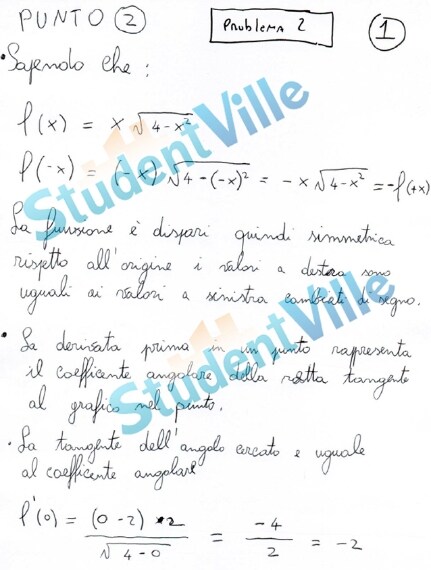 PUNTO ②
Problema 2
①
• Sapendo che :
f(x) = x √4-x²
f(-x) = (-x) √4-(-x)² = -x √4-x² = -f(+x)
La funzione è dispari quindi simmetrica
rispetto all'origine i valori a destra sono
uguali ai valori a sinistra cambiati di segno.
• La derivata prima in un punto rappresenta
il coefficente angolare della retta tangente
al grafico nel punto.
• La tangente dell'angolo cercato e uguale
al coefficente angolare
f'(0) = (0-2) 2 / √4-0 = -4 / 2 = -2
StudentVille
StudentVille